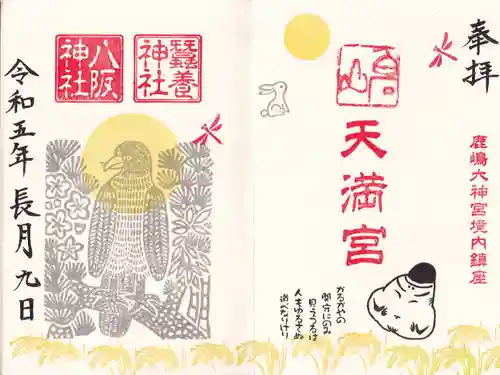 奉拝
鹿嶋大神宮境内鎮座
天満宮
かるかやの
関守にのみ
見えつるは
人もゆるさぬ
道べなりけり
蠶養
神社
八阪
神社
令和五年 長月九日